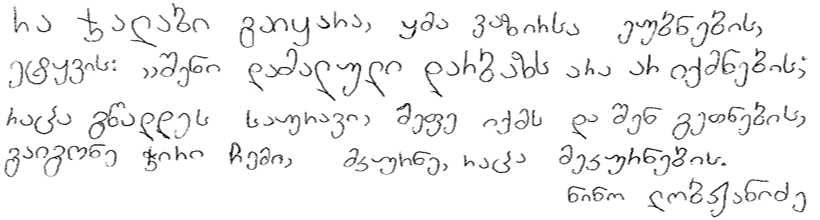 რა ჯალაბი გაიყარა, ყმა ვაზირსა ეუბნების,
ეტყვის: ,,შენი დამალული დარბაზს არა არ იქმნების;
რაცა გწადდეს საურავი, მეფე იქმს და შენ გეთნების,
გაიგონე ჭირი ჩემი, მკურნე, რაცა მეკურნების.
ნინო ლობჟანიძე